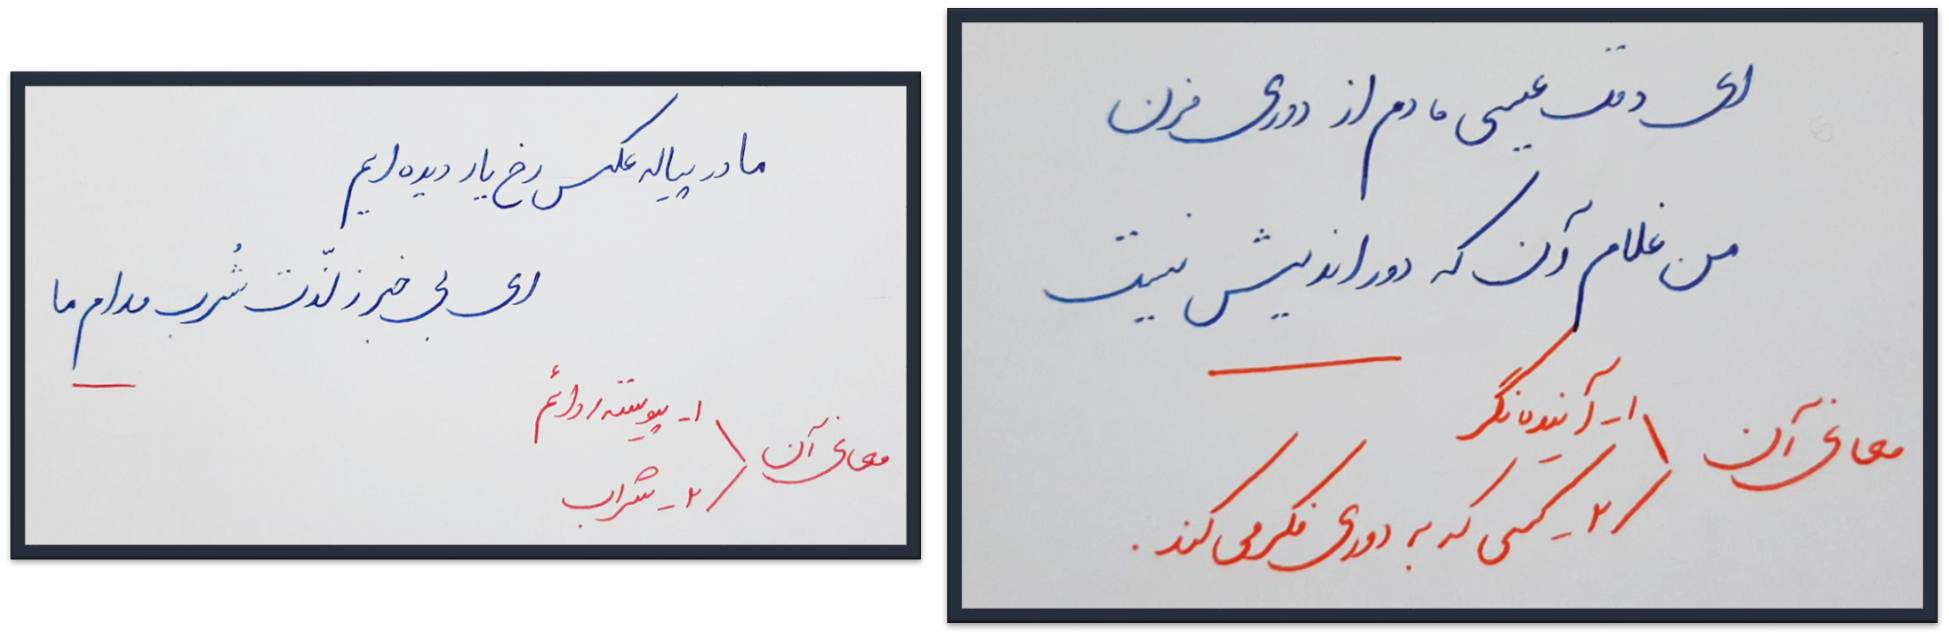 ای دمت عیسی، دم از دوری مزن
من غلام آن که دور اندیش نیست
معانی آن
۱- آینده‌نگر
۲- کسی که به دوری فکر می کند.
ما در پیاله عکس رخ یار دیده ایم
ای بی خبر ز لذّت شُرب مدام ما
معانی آن
۱- پیوسته / دائم
۲- شراب